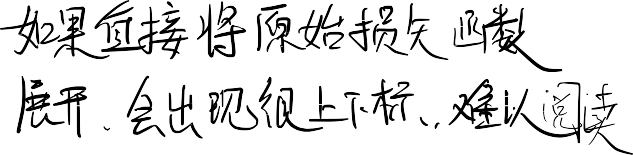 如果直接将原始损失函数
展开、会出现很上下标、、难以阅读